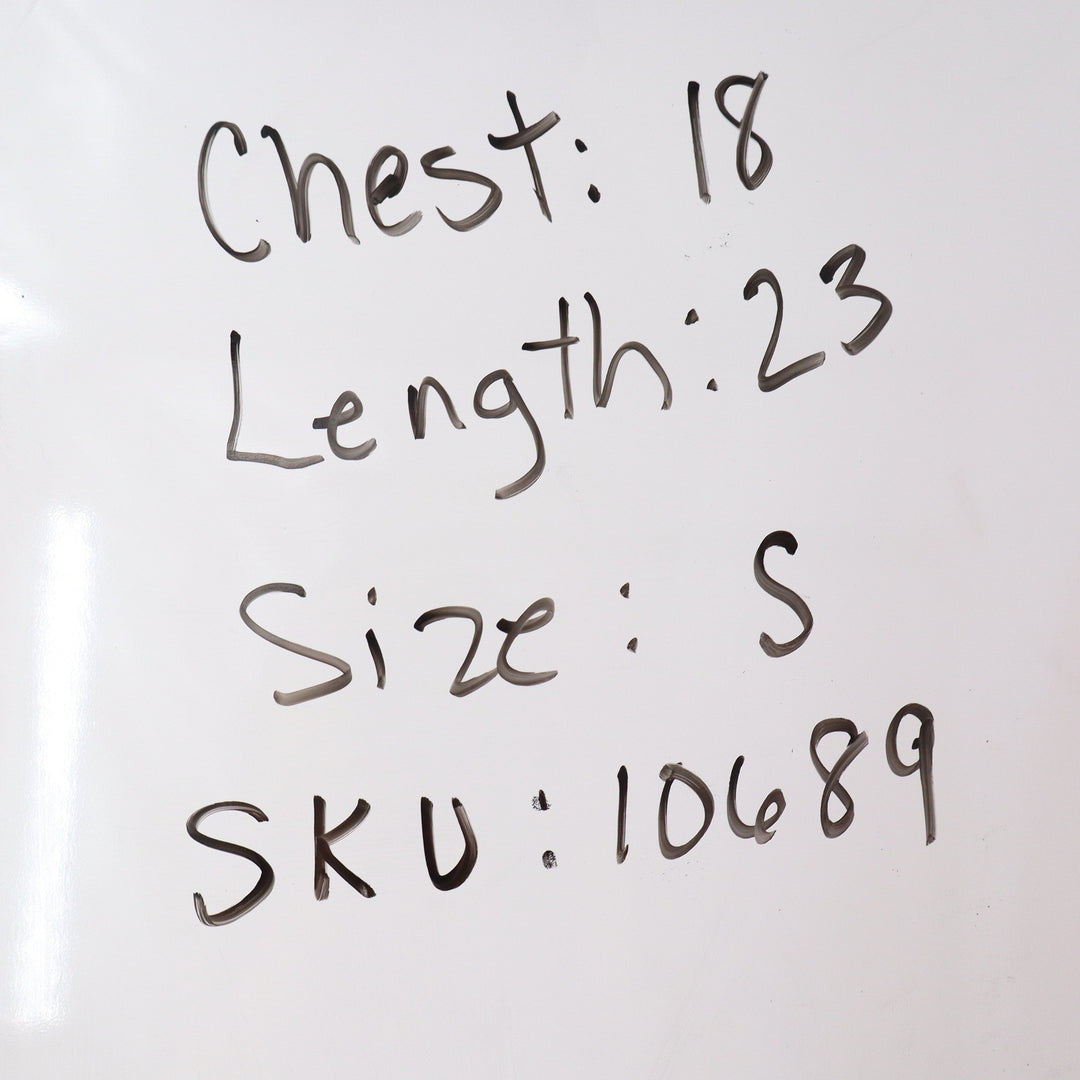 Chest: 18
Length: 23
Size: S
SKU: 10689